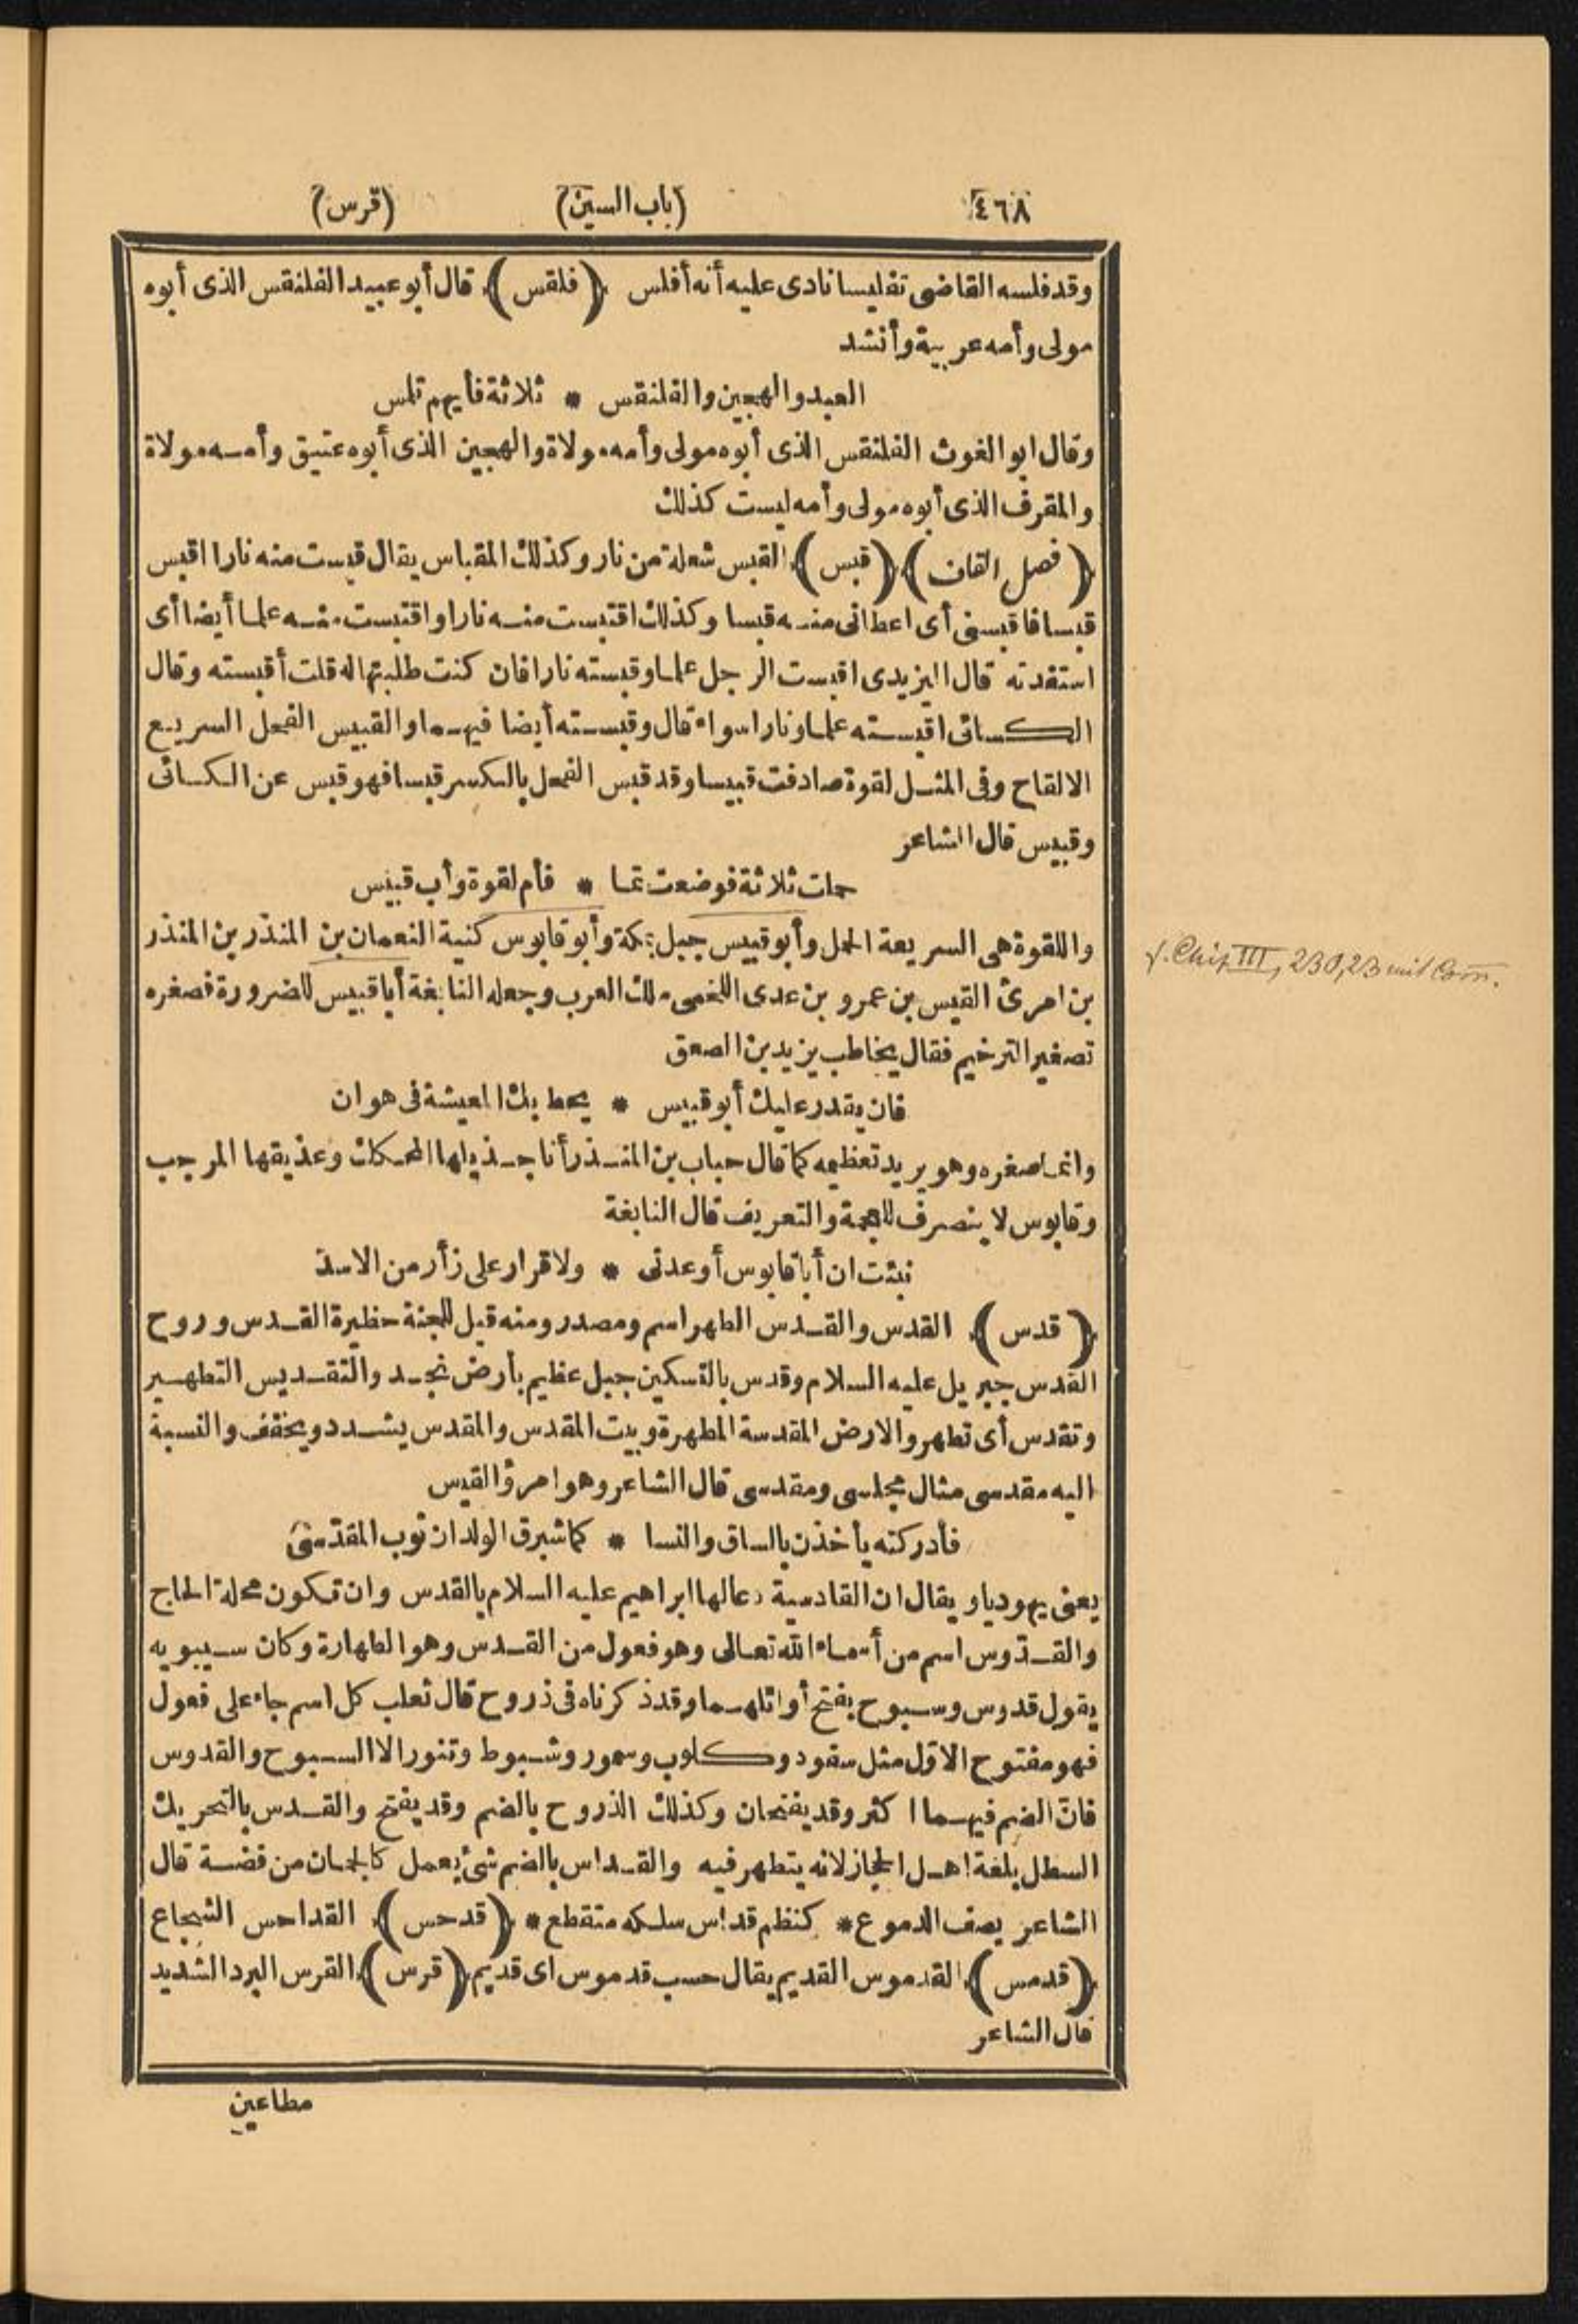 ٤٦٨ (باب السين) (قرس)
وقد فلسه القاضى تفليسا نادى عليه أنه أفلس (فلقس) قال أبو عبيد الفلنقس الذى أبوه
مولى وأمه عربية وأنشد
العبد والهجين والفلنقس * ثلاثة فأيهم تلمس
وقال ابو الغوث الفلنقس الذى أبوه مولى وأمه مولاة والهجين الذى أبوه عتيق وأمه مولاة
والمقرف الذى أبوه مولى وأمه ليست كذلك
(فصل القاف) (قبس) القبس شعلة من نار وكذلك المقباس يقال قبست منه نارا اقبس
قبسا فاقبسنى أى اعطانى منه قبسا وكذلك اقتبست منه نارا واقتبست منه علما أيضا أى
استفدته قال اليزيدى اقبست الرجل علما وقبسته نارا فان كنت طلبتها له قلت أقبسته وقال
الكسائى اقبسته علما ونارا سواء قال وقبسته أيضا فيهما والقبيس الفحل السريع
الالقاح وفى المثل لقوة صادفت قبيسا وقد قبس الفحل بالكسر قبسا فهو قبس عن الكسائى
وقبيس قال الشاعر
حملت ثلاثة فوضعت تما * فأم لقوة وأب قبيس
واللقوة هى السريعة الحمل وأبو قبيس جبل بمكة وأبو قابوس كنية النعمان بن المنذر بن المنذر
بن امرئ القيس بن عمرو بن عدى اللخمى ملك العرب وجعله النابغة أبا قبيس للضرورة فصغره
تصغير الترخيم فقال يخاطب يزيد بن الصعق
فان يقدر عليك أبو قبيس * يحط بك المعيشة فى هوان
وانما صغره وهو يريد تعظيمه كما قال حباب بن المنذر أنا جذيلها المحكك وعذيقها المرجب
وقابوس لا ينصرف للعجمة والتعريف قال النابغة
نبئت ان أبا قابوس أوعدنى * ولا قرار على زأر من الاسد
(قدس) القدس والقدس الطهر اسم ومصدر ومنه قيل للجنة حظيرة القدس وروح
القدس جبريل عليه السلام وقدس بالتسكين جبل عظيم بأرض نجد والتقديس التطهير
وتقدس أى تطهر والارض المقدسة المطهرة وبيت المقدس والمقدس يشدد ويخفف والنسبة
اليه مقدسى مثال مجلسى ومقدسى قال الشاعر وهو امرؤ القيس
فأدركنه يأخذن بالساق والنسا * كما شبرق الولدان ثوب المقدّسى
يعنى يهوديا ويقال ان القادسية دعا لها ابراهيم عليه السلام بالقدس وان تكون محلة الحاج
والقدّوس اسم من أسماء الله تعالى وهو فعول من القدس وهو الطهارة وكان سيبويه
يقول قدوس وسبوح بفتح أوائلهما وقد ذكرناه فى ذروح قال ثعلب كل اسم جاء على فعول
فهو مفتوح الاوّل مثل سفود وكلوب وسمور وشبوط وتنور الا السبوح والقدوس
فانّ الضم فيهما اكثر وقد يفتحان وكذلك الذروح بالضم وقد يفتح والقدس بالتحريك
السطل بلغة اهل الحجاز لانه يتطهر فيه والقداس بالضم شئ يعمل كالجمان من فضة قال
الشاعر يصف الدموع * كنظم قداس سلكه متقطع * (قدحس) القداحس الشجاع
(قدمس) القدموس القديم يقال حسب قدموس اى قديم (قرس) القرس البرد الشديد
قال الشاعر
مطاعين
III, 230,23 mit Com.